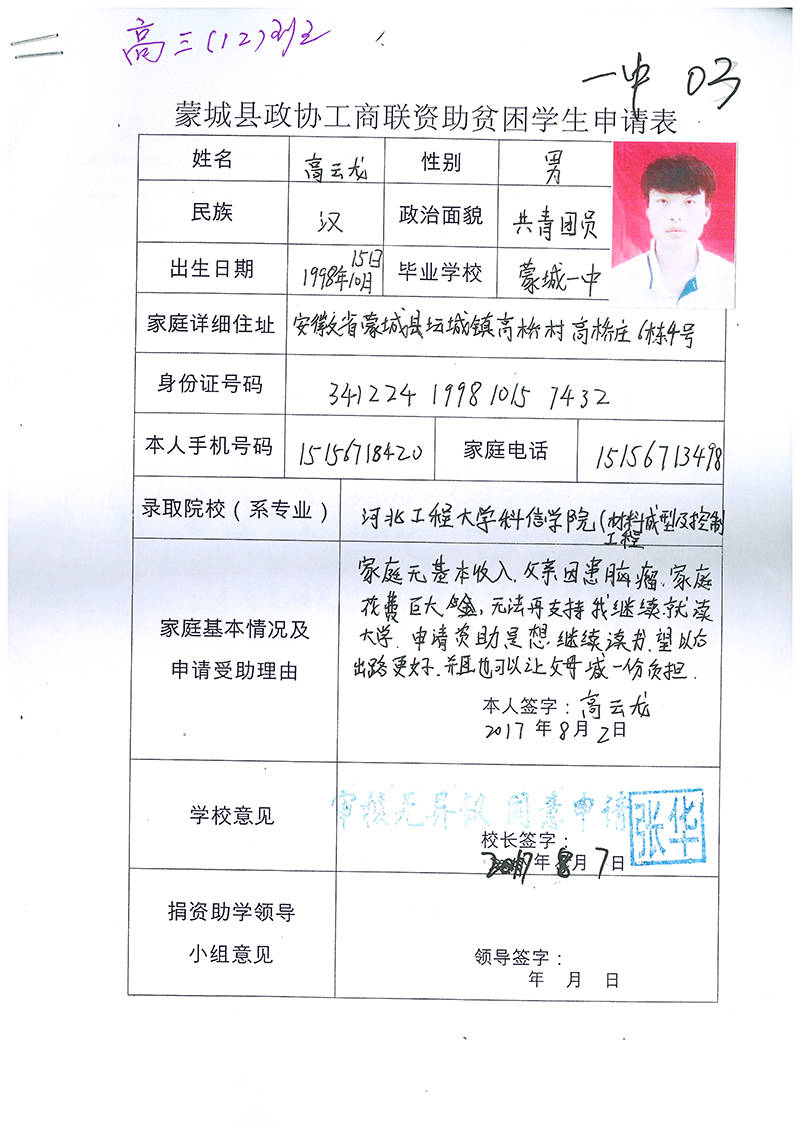 高三(12)班
一中 03
蒙城县政协工商联资助贫困学生申请表
姓名 高云龙 性别 男
民族 汉 政治面貌 共青团员
出生日期 1998年10月15日 毕业学校 蒙城一中
家庭详细住址 安徽省蒙城县坛城镇高桥村高桥庄6栋4号
身份证号码 341224 1998 1015 7432
本人手机号码 15156718420 家庭电话 15156713498
录取院校（系专业） 河北工程大学科信学院(材料成型及控制
工程
家庭基本情况及
申请受助理由
家庭无基本收入，父亲因患脑瘤，家庭
花费巨大，无法再支持我继续就读
大学，申请资助是想继续读书，望以后
出路更好，并且也可以让父母减一份负担．
本人签字：高云龙
2017年8月2日
学校意见
审核无异议 同意申请
张华
校长签字：
2017年8月7日
捐资助学领导
小组意见
领导签字：
年 月 日